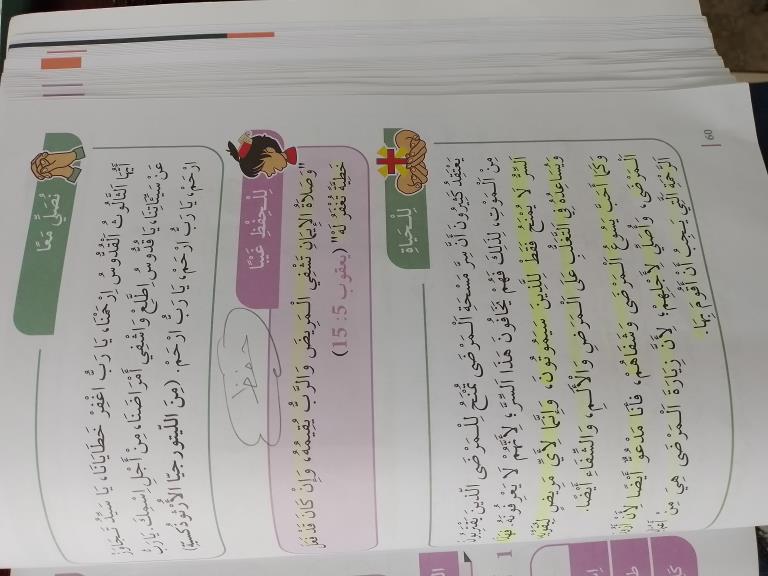 نُصَلّي مَعًا
أَيُّها الثَّالُوثُ الْقُدُّوسُ ارْحَمْنَا، يَا رَبُّ اغْفِرْ خَطايَانَا، يَا سَيِّدُ تَجَاوَزْ
عَنْ سَيِّئَاتِنَا، يَا قُدُّوسُ اطَّلِعْ وَاشْفِي أَمْرَاضَنَا، مِنْ أَجْلِ اسْمِكَ يَا رَبُّ
ارْحَمْ، يَا رَبُّ ارْحَمْ، يَا رَبُّ ارْحَمْ. (مِنَ اللّيتورجيّا الأُرْثوذكسيّة)
لِلْحِفْظِ غَيْبًا
حفظ
"وَصَلاةُ الإِيمَانِ تَشْفِي الْمَرِيضَ وَالرَّبُّ يُقِيمُهُ، وَإِنْ كَانَ قَدْ فَعَلَ
خَطِيَّةً تُغْفَرُ لَهُ" (يعقوب 5: 15)
لِلْحَيَاةِ
يَعْتَقِدُ كَثِيرُونَ أَنَّ سِرَّ مَسْحَةِ الْمَرْضَى يُمْنَحُ لِلْمَرْضَى الَّذِينَ يَقْتَرِبُونَ
مِنَ الْمَوْتِ، لِذَلِكَ فَهُمْ يَخَافُونَ هَذَا السِّرَّ؛ لِأَنَّهُمْ لَا يَعْرِفُونَهُ. فَهَذَا
السِّرُّ لَا يُمْنَحُ فَقَطْ لِلَّذِينَ سَيَمُوتُونَ، وَإِنَّمَا لِأَيِّ مَرِيضٍ لِيُقَوِّيَهُ
وَيُسَاعِدَهُ فِي التَّغَلُّبِ عَلَى الْمَرَضِ وَالْأَلَمِ، وَالشِّفَاءِ أَيْضًا.
وَكَمَا أَحَبَّ يَسُوعُ الْمَرْضَى وَشَفَاهُمْ، فَأَنَا مَدْعُوٌّ أَيْضًا لِأَنْ أَزُورَ
الْمَرْضَى، وَأُصَلِّي لِأَجْلِهِمْ؛ لِأَنَّ زِيَارَةَ الْمَرْضَى هِيَ مِنْ
الرَّحْمَةِ الَّتِي يَجِبُ أَنْ أَقُومَ بِهَا.
60